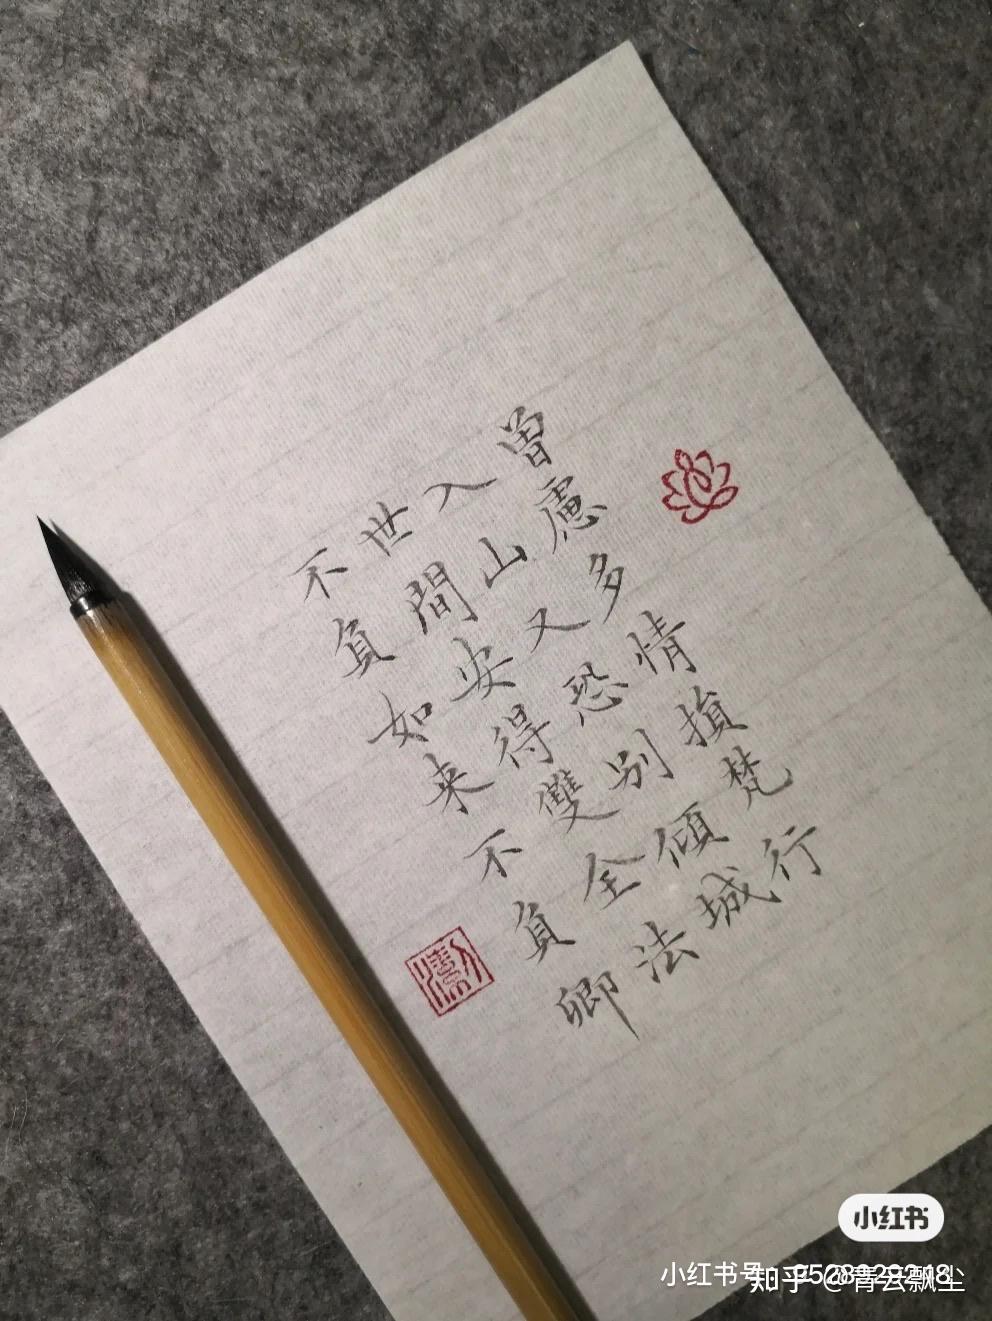 曾慮多情損梵行
入山又恐别傾城
世間安得雙全法
不負如来不負卿
小红书
小红书号：
知乎 @青云飘尘